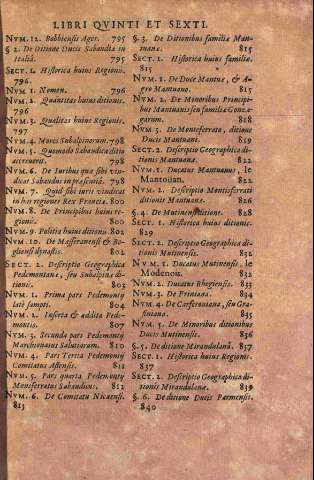 LIBRI QVINTI ET SEXTI.
NVM. 12. Bobbiensis Ager. 795
§ 2. De Ditione Ducis Sabaudiæ in
Italiâ. 795
SECT. 1. Historica huius Regionis.
796.
NVM 1. Nomen. 796
NVM 2. Quantitas huius ditionis.
796
NVM 3. Qualitas huius Regionis.
797
NVM. 4. Mores Subalpinorum. 798
NVM. 5. Quomodo Sabaudicæ ditio
accreuerit. 798
NVM. 6. De Iuribus quæ sibi vin-
dicat Sabaudus in præsentiâ. 798
NVM 7. Quid sibi iuris vindicat
in has regiones Rex Franciæ. 800
NVM. 8. De Principibus huius re-
gionis. 800
NVM. 9. Politia huius ditionis. 802
NVM. 10. De Masseranensi & Bo-
gliensi dynastis. 802
SECT. 2. Descriptio Geographica
Pedemontana, seu Subalpina di-
tionis. 803
NVM. 1. Prima pars Pedemontij
latè sumpti. 804
NVM. 2. Inserta & addita Pede-
montio. 807
NVM. 3. Secunda pars Pedemontij
Marchionatus Salutiorum. 810
NVM. 4. Pars Tertia Pedemontij
Comitatus Astensis. 811
NVM. 5. Pars quarta Pedemontij
Monsferratus Sabaudicus. 812
NVM. 6. De Comitatu Nicæensi.
813
§. 3. De Ditionibus familiæ Man-
tuanæ. 815
SECT. 1. Historica huius familiæ
815
NVM. 1. De Duce Mantuæ, & A-
gro Mantuano. 815
NVM. 2. De Minoribus Principi-
bus Mantuanis seu familiæ Gonza-
garum. 818
NVM. 3. De Monteferrato, ditione
Ducis Mantuani. 819
SECT. 2. Descriptio Geographica di-
tionis Mantuanæ. 822
NVM. 1. Ducatus Mantuanus, le
Mantoüan. 822
NVM. 2. Descriptio Montisferrati
ditionis Mantuanæ. 826
§. 4. De Mutinensi ditione. 828
SECT. 1. Historica huius ditionis.
829
SECT. 2. Descriptio Geographica di-
tionis Mutinensis. 832
NVM. 1. Ducatus Mutinensis, le
Modenois. 832
NVM. 2. Ducatus Rhegiensis. 832
NVM. 3. De Frinianâ. 834
NVM. 4. De Carferonianâ, seu Gra-
finianâ. 835
NVM. 5. De Minoribus ditionibus
Ducis Mutinensis. 836
§. 5. De ditione Mirandulanâ. 837
SECT. 1. Historica huius Regionis.
837
SECT. 2. Descriptio Geographica di-
tionis Mirandulanæ. 839
§. 6. De ditione Ducis Parmensis.
840